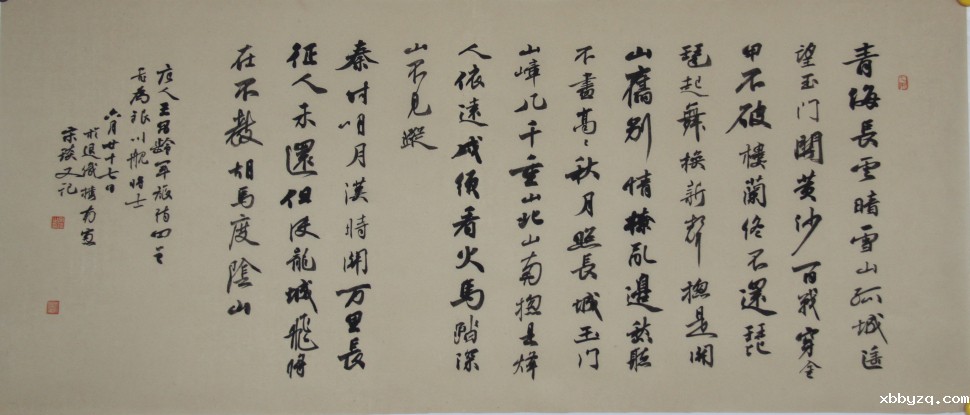 青海長雲暗雪山孤城遥
望玉门關黄沙百戰穿金
甲不破樓蘭终不還琵
琶起舞换新聲揔是関
山舊别情撩亂邊愁聽
不盡高〻秋月照長城玉门
山嶂几千重山北山南揔是烽
人依遠戍須看火馬踏深
山不見蹤
秦时明月漢時關万里長
征人未還但使龍城飛将
在不教胡馬度陰山
唐人王昌龄军旅诗四首
将士
六月廿十七日
又记
xbbyzq.com